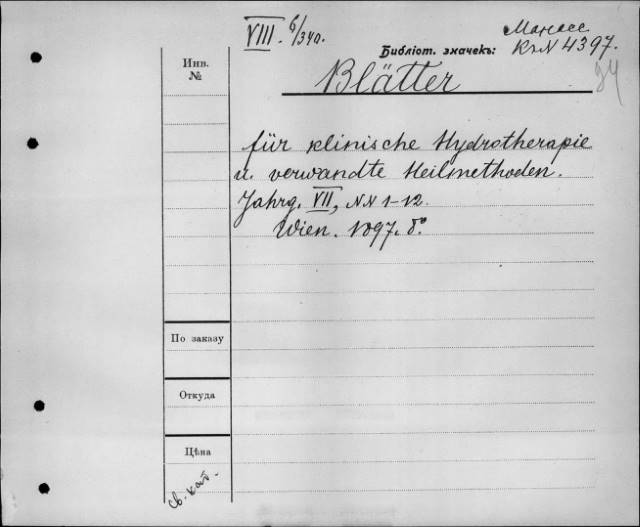 VIII. б/340.
Манасс
Библіот. значекъ: Кз N 4397.
84
Инв. №
Blätter
für klinische Hydrotherapie
u. verwandte Heilmethoden.
Jahrg. VII, NN 1-12.
Wien. 1897. 8°
По заказу
Откуда
Цѣна
Св. каб.